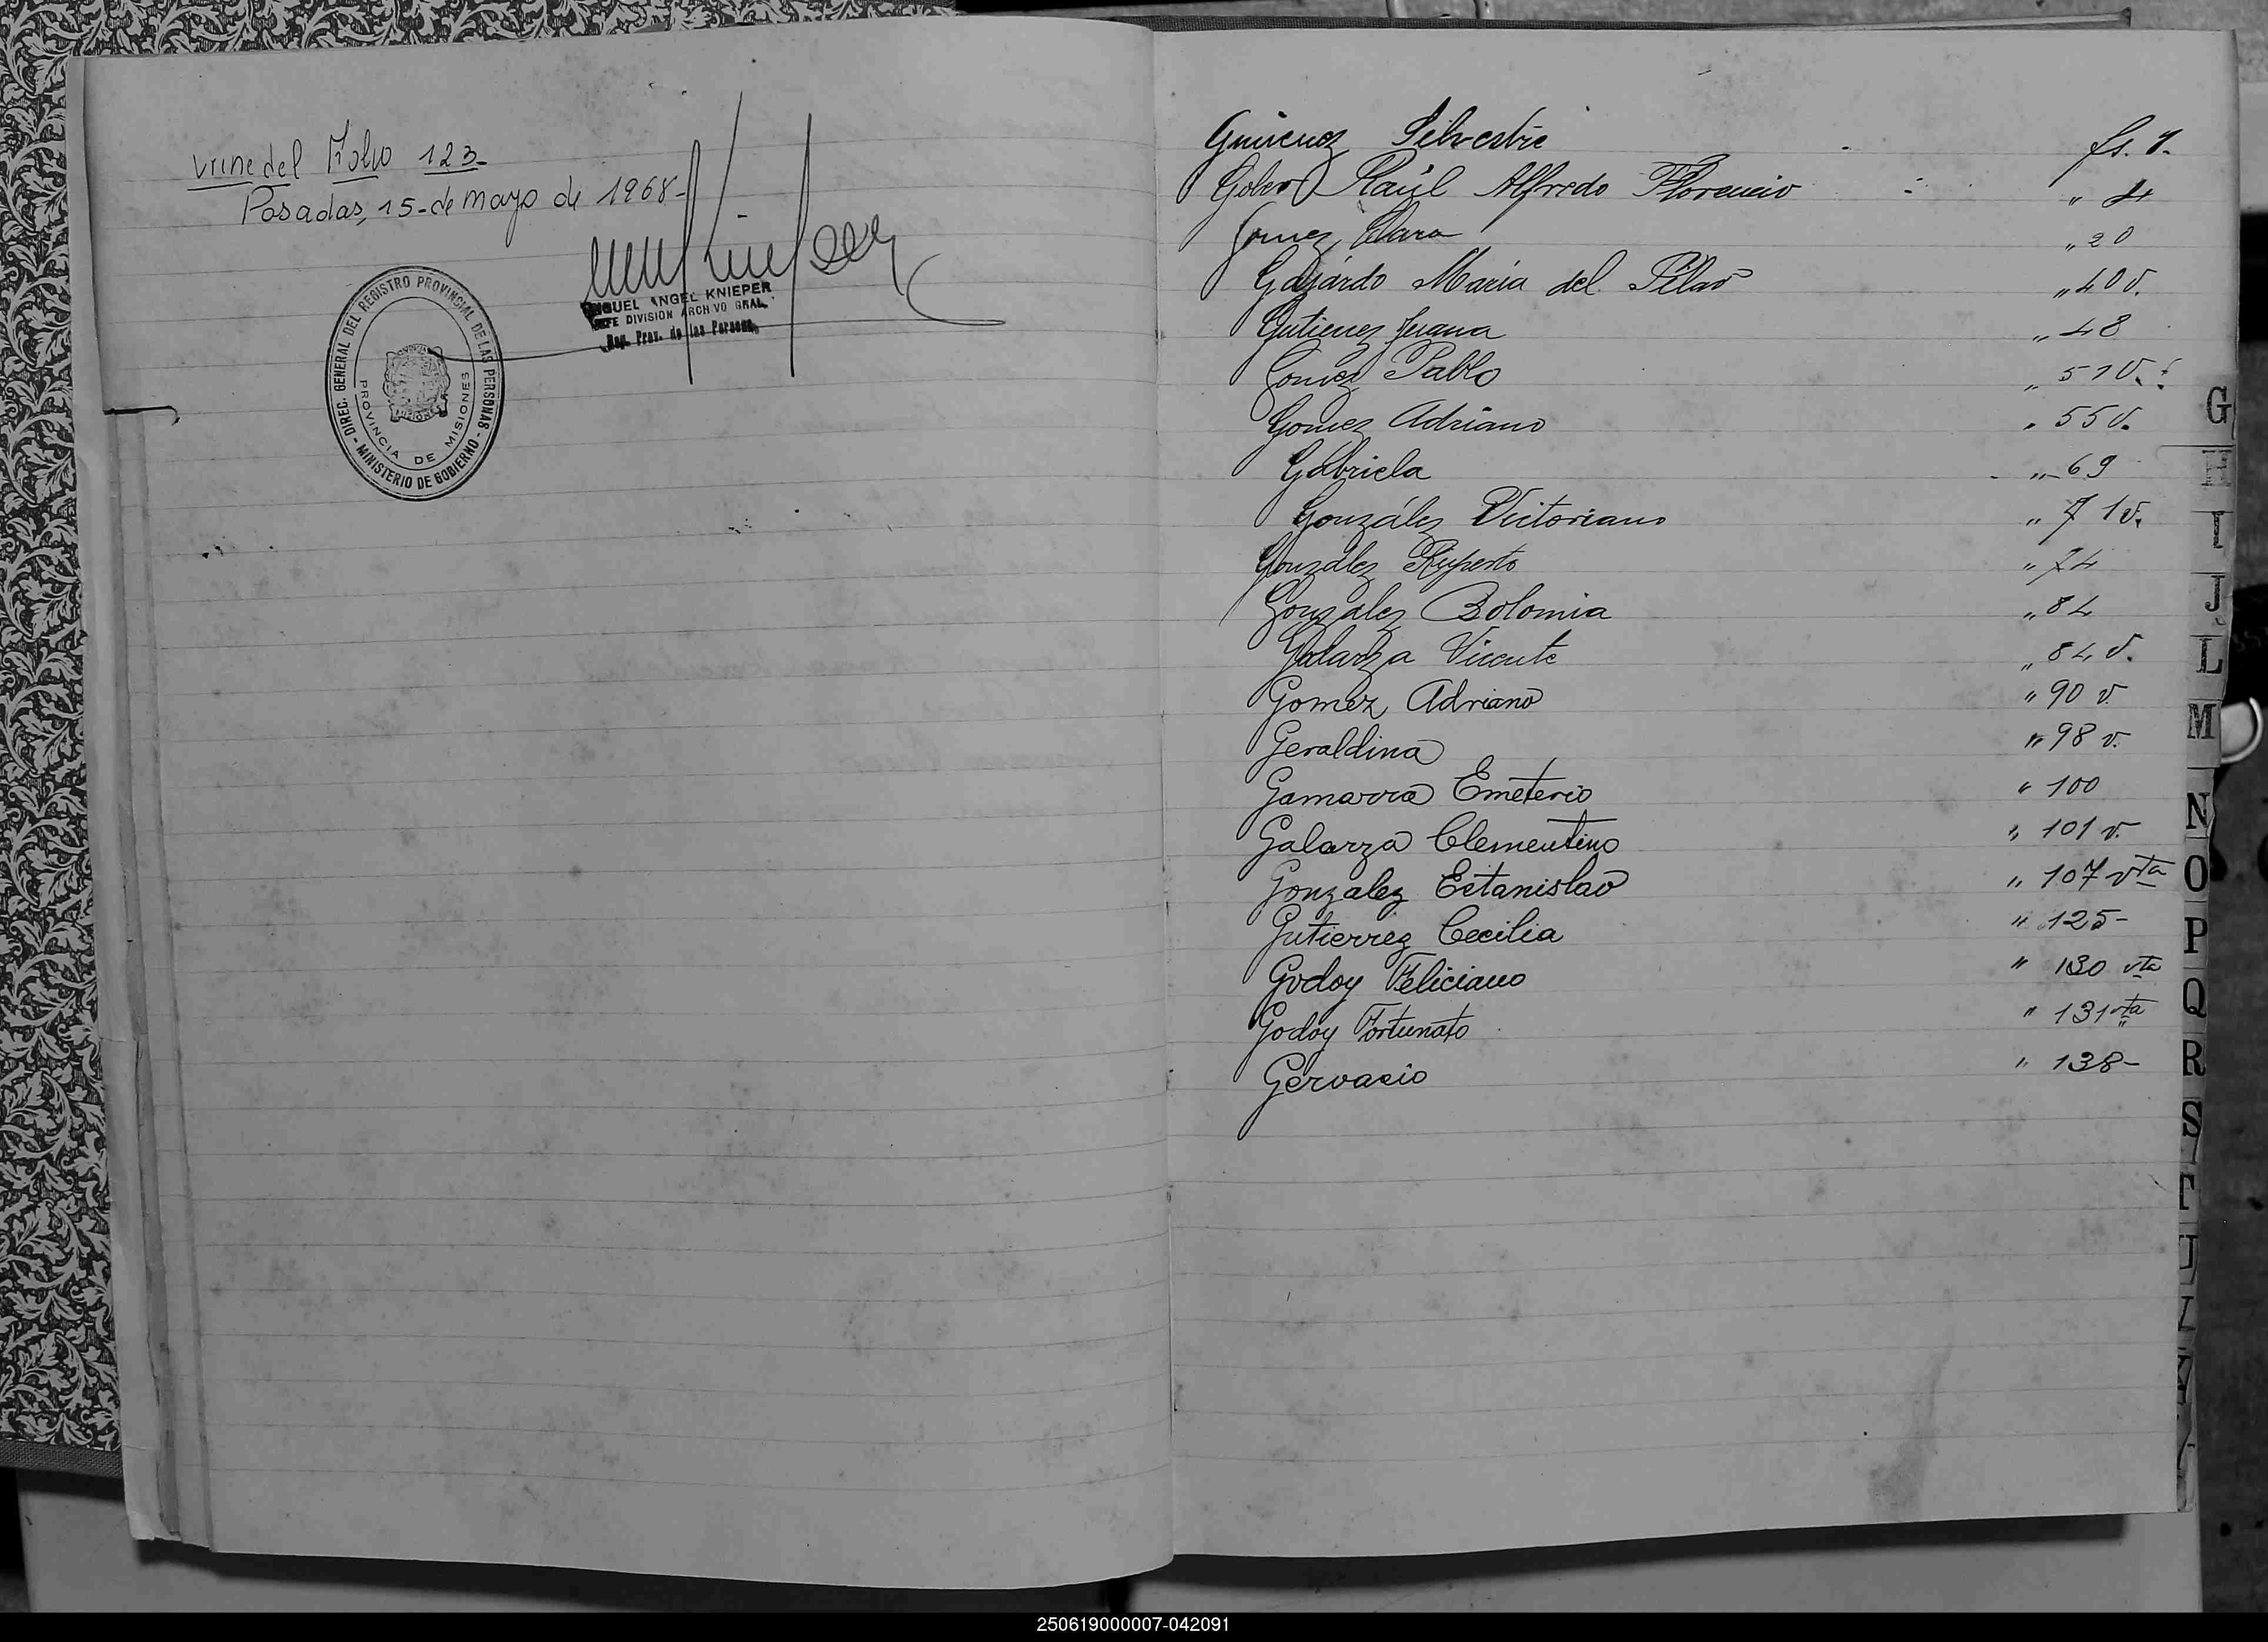 viene del Folio 123-
Posadas, 15-de mayo de 1968-
MIGUEL ANGEL KNIEPER
JEFE DIVISION ARCHIVO GRAL.
Reg. Prov. de las Personas
DIREC. GENERAL DEL REGISTRO PROVINCIAL DE LAS PERSONAS - MINISTERIO DE GOBIERNO -
PROVINCIA DE MISIONES
Gimenez Silvestre fs. 1.
Raúl Alfredo Florencio " 4
Gomez Clara " 20
Gajardo Maria del Pilar " 40 v.
Gutierrez Juana " 48
Gomez Pablo " 51 v.
Gomez Adriano " 55 v.
Gabriela " 69
González Victoriano " 71 v.
González Ruperto " 74
Gonzalez Bolomia " 84
Galarza Vicente " 84 v.
Gomez Adriano " 90 v.
Geraldina " 98 v.
Gamarra Emeterio " 100
Galarza Clementino " 101 v.
Gonzalez Estanislao " 107 vta
Gutierrez Cecilia " 125-
Godoy Feliciano " 130 vta
Godoy Fortunato " 131 vta
Gervacio " 138-
G
H
I
J
L
M
N
O
P
Q
R
S
T
U
V
250619000007-042091